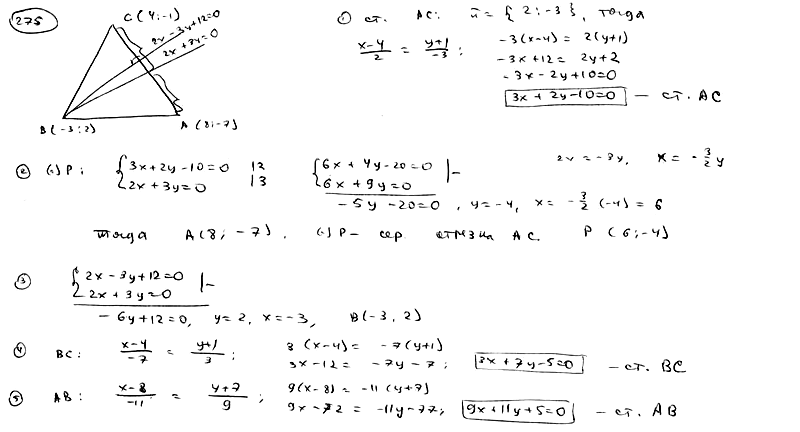 275
C (4;-1)
2x-3y+12=0
2x+3y=0
B(-3;2)
A (8;-7)
① ст. AC: n̄ = {2;-3}, тогда
(x-4)/2 = (y+1)/-3; -3(x-4) = 2(y+1)
-3x+12 = 2y+2
-3x-2y+10=0
3x+2y-10=0 — ст. AC
② (·) P: {3x+2y-10=0 |2 {6x+4y-20=0 |- 2x = -3y, x = -3/2 y
2x+3y=0 |3 6x+9y=0
-5y-20=0, y=-4, x= -3/2 (-4) = 6
Тогда A(8;-7). (·) P - сер. AC. P (6;-4)
③ {2x-3y+12=0 |-
2x+3y=0
-6y+12=0, y=2, x=-3, B(-3,2)
④ BC: (x-4)/-7 = (y+1)/3; 3(x-4) = -7(y+1)
3x-12 = -7y-7; 3x+7y-5=0 — ст. BC
⑤ AB: (x-8)/-11 = (y+7)/9; 9(x-8) = -11(y+7)
9x-72 = -11y-77; 9x+11y+5=0 — ст. AB